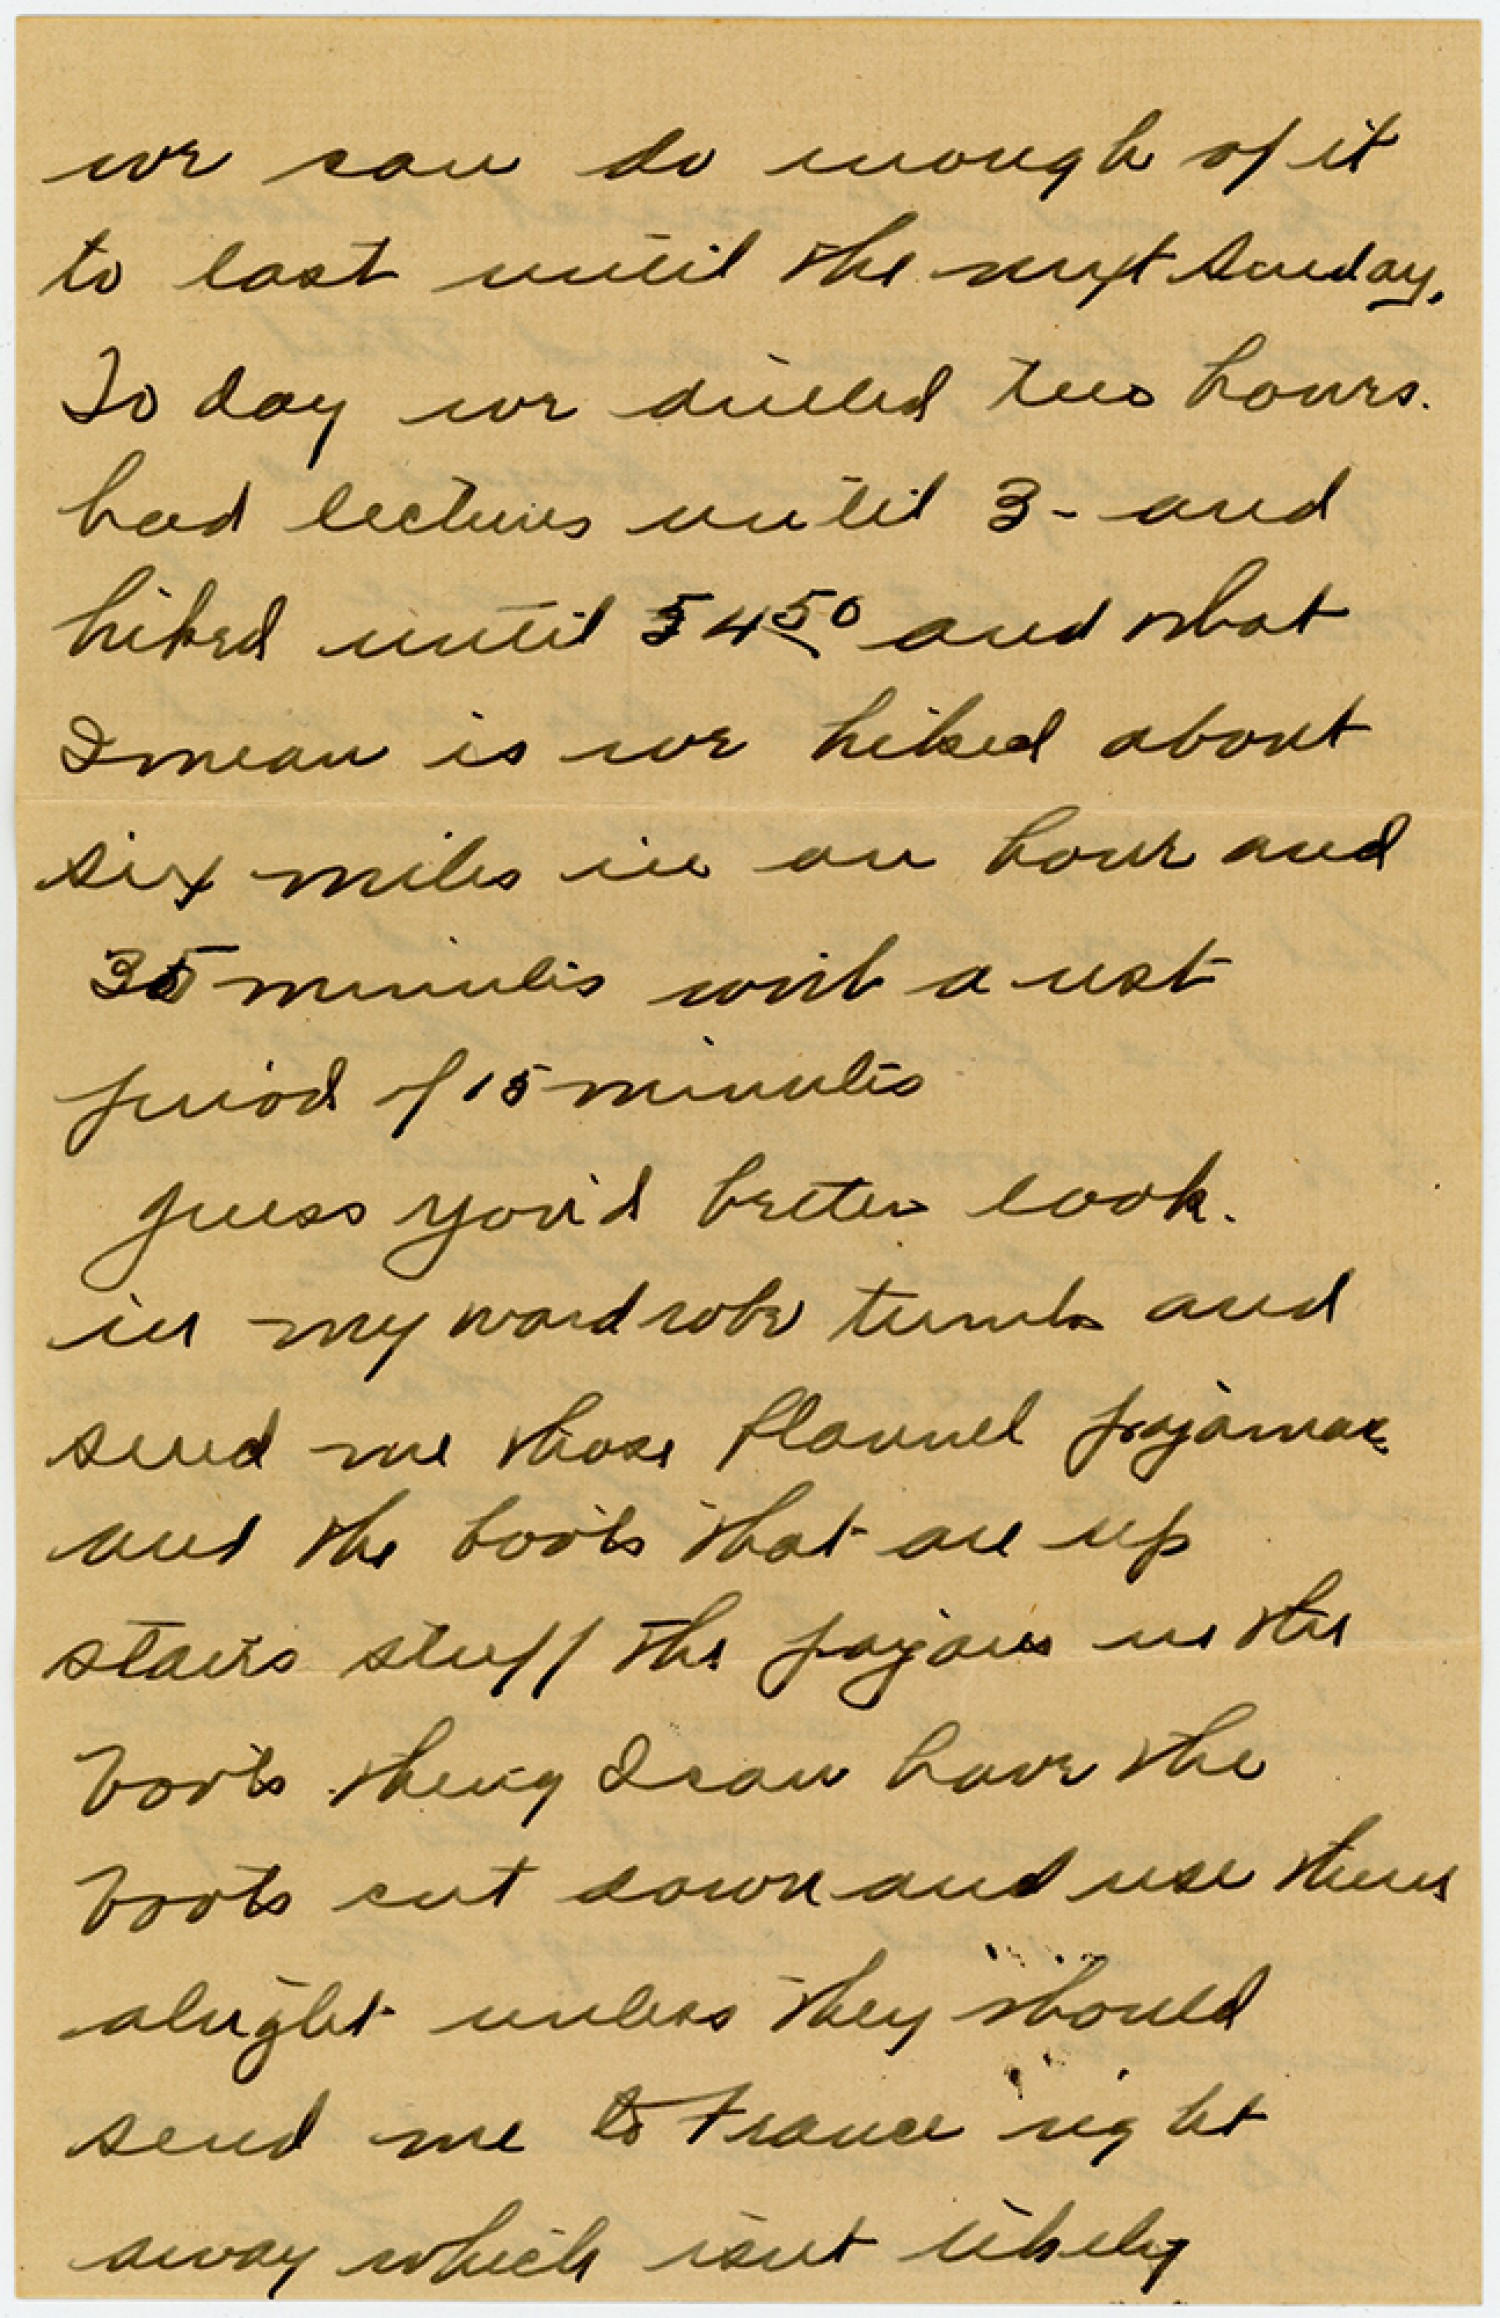 we can do enough of it
to last until the next Sunday.
To day we drilled two hours.
had lectures until 3- and
hiked until 4 50 and what
I mean is we hiked about
six miles in an hour and
35 minutes with a rest
period of 15 minutes
guess you'd better look.
in my wardrobe trunk and
send me those flannel pajamas
and the boots that are up
stairs stuff the pajams in the
boots I can have the
boots cut down and use them
alright unless they should
send me to France right
away which isnt likely